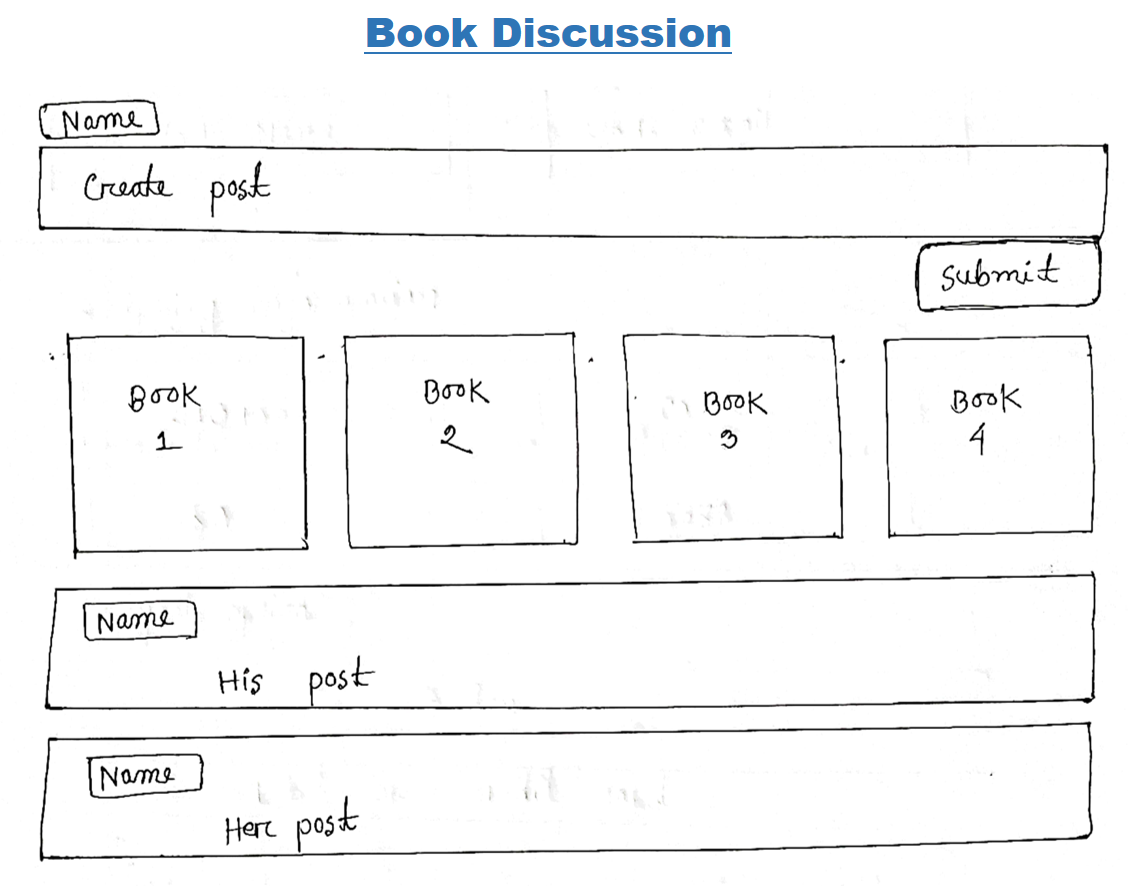 Book Discussion
Name
Create post
Submit
Book
1
Book
2
Book
3
Book
4
Name
His post
Name
Her post